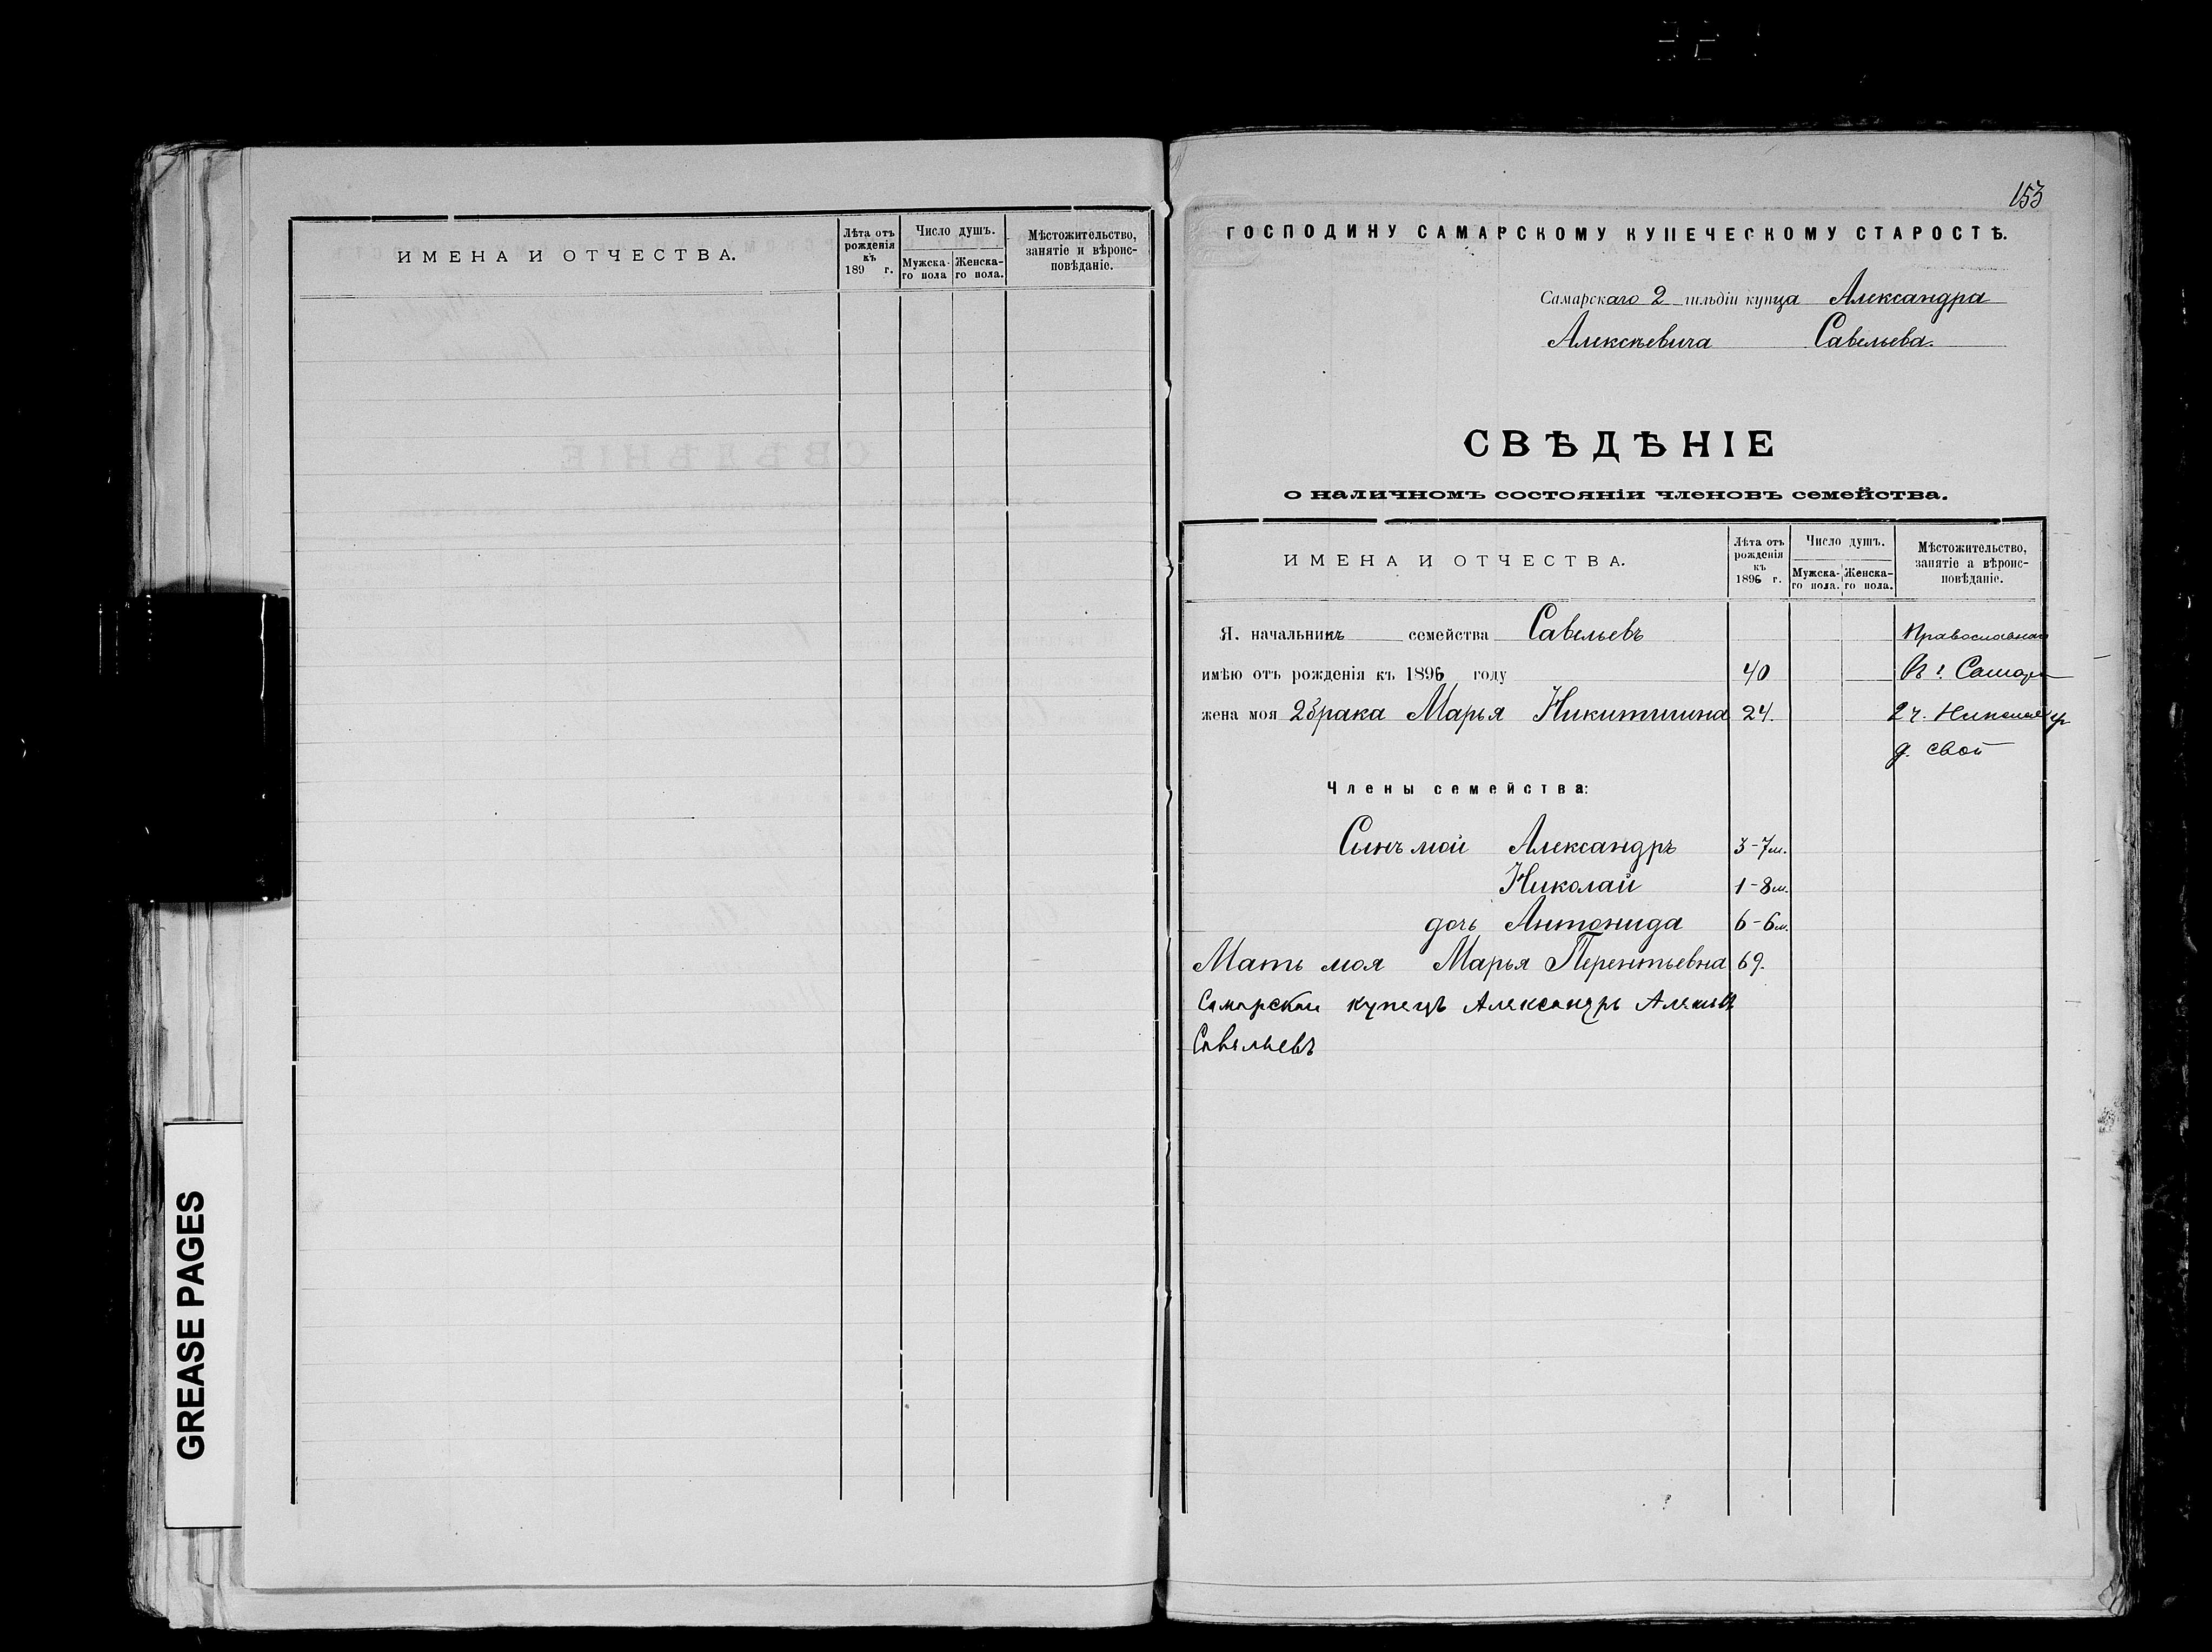 ИМЕНА И ОТЧЕСТВА.
Лѣта отъ рожденія къ 189 г.
Число душъ.
Мужска-го пола
Женска-го пола.
Мѣстожительство, занятіе и вѣроис-повѣданіе.
GREASE PAGES
153
ГОСПОДИНУ САМАРСКОМУ КУПЕЧЕСКОМУ СТАРОСТѢ.
Самарскаго 2 гильдіи купца Александра
Алексѣевича Савельева.
СВѢДѢНІЕ
о наличномъ состояніи членовъ семейства.
ИМЕНА И ОТЧЕСТВА.
Лѣта отъ рожденія къ 1896 г.
Число душъ.
Мужска-го пола.
Женска-го пола.
Мѣстожительство, занятіе а вѣроис-повѣданіе.
Я. начальникъ семейства Савельевъ Православнаго
имѣю отъ рожденія къ 1896 году 40 Въ г. Самарѣ
жена моя 2 брака Марья Никитишна 24. 2 ч.
д. свой
Члены семейства:
Сынъ мой Александръ 3-7м.
Николай 1-8м.
дочь Антонида 6-6м.
Мать моя Марья Терентьевна 69.
Самарскаи купецъ Александръ
Савельевъ